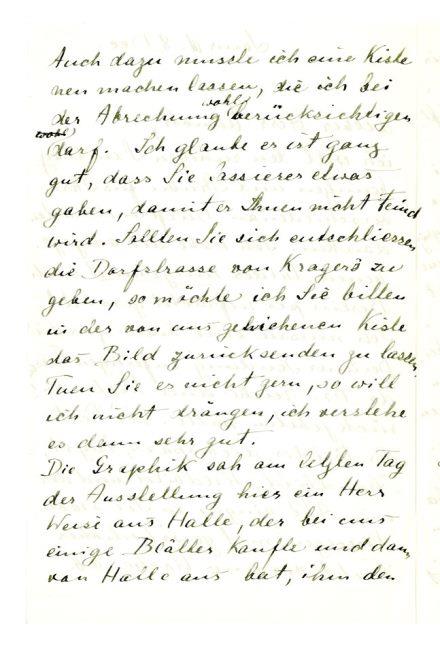 Auch dazu musste ich eine Kiste
neu machen lassen, die ich bei
der Abrechnung wohl berücksichtigen
darf. Ich glaube es ist ganz
gut, dass Sie Cassierer etwas
gaben, damit er Ihnen nicht Feind
wird. Sollten Sie sich entschliessen
die Dorfstrasse von Kragerö zu
geben, so möchte ich Sie bitten
in der von uns geliehenen Kiste
das Bild zurücksenden zu lassen.
Tuen Sie es nicht gern, so will
ich nicht drängen, ich verstehe
es dann sehr gut.
Die Graphik sah am letzten Tag
der Ausstellung hier ein Herr
Weise aus Halle, der bei uns
einige Blätter kaufte und dann
von Halle aus bat, ihm den